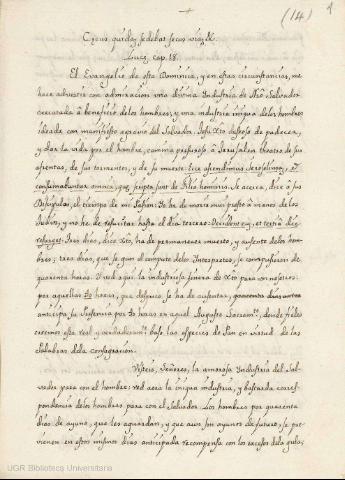 +
(14) 1
Cæcus quidam sedebat secus viam &
Lucæ, cap. 18.
El Evangelio de esta Dominica, y en estas circunstancias, me
hace advertir con admiracion una divina Industria de Nro Salvador
executada à beneficio de los hombres, y una industria iniqua de los hombres
ideada con manifiesto agravio del Salvador. Jesu Xto deseoso de padecer,
y dar la vida por el hombre, camina presuroso à Jerusalen theatro de sus
afrentas, de sus tormentos, y de su muerte. Ecce ascendimus Jerosolimam, et
consumabuntur omnia, quæ scripta sunt de Filio hominis. Se acerca, dice à sus
Discipulos, el tiempo de mi Pasion: Yo he de morir mui presto à manos de los
Judios, y no he de resucitar hasta el dia tercero: Occident eum, et tertia die
resurget. Tres dias, dice Xto, ha de permanecer muerto, y ausente de los hom-
bres; tres dias, que segun el computo de los Interpretes, se compusieron de
quarenta horas. Y ved aqui la industria sincera de Xto para con nosotros:
por aquellas 40 horas, que despues se ha de ausentar,
anticipa su presencia por 40 horas en aquel Augusto Sacramto. donde fieles
creemos està real, y verdaderamte. baxo las especies de Pan en virtud de las
Palabras de la consagracion.
Visteis, Señores, la amorosa Industria del Sal-
vador para con el hombre; ved aora la iniqua industria, y bastarda corres-
pondencia de los hombres para con el Salvador. Los hombres por quarenta
dias de ayuno, que les aguardan, y que aun son ayunos de futuro, se pre-
vienen en estos mismos dias anticipada recompensa con los excesos de la gula;
UGR Biblioteca Universitaria